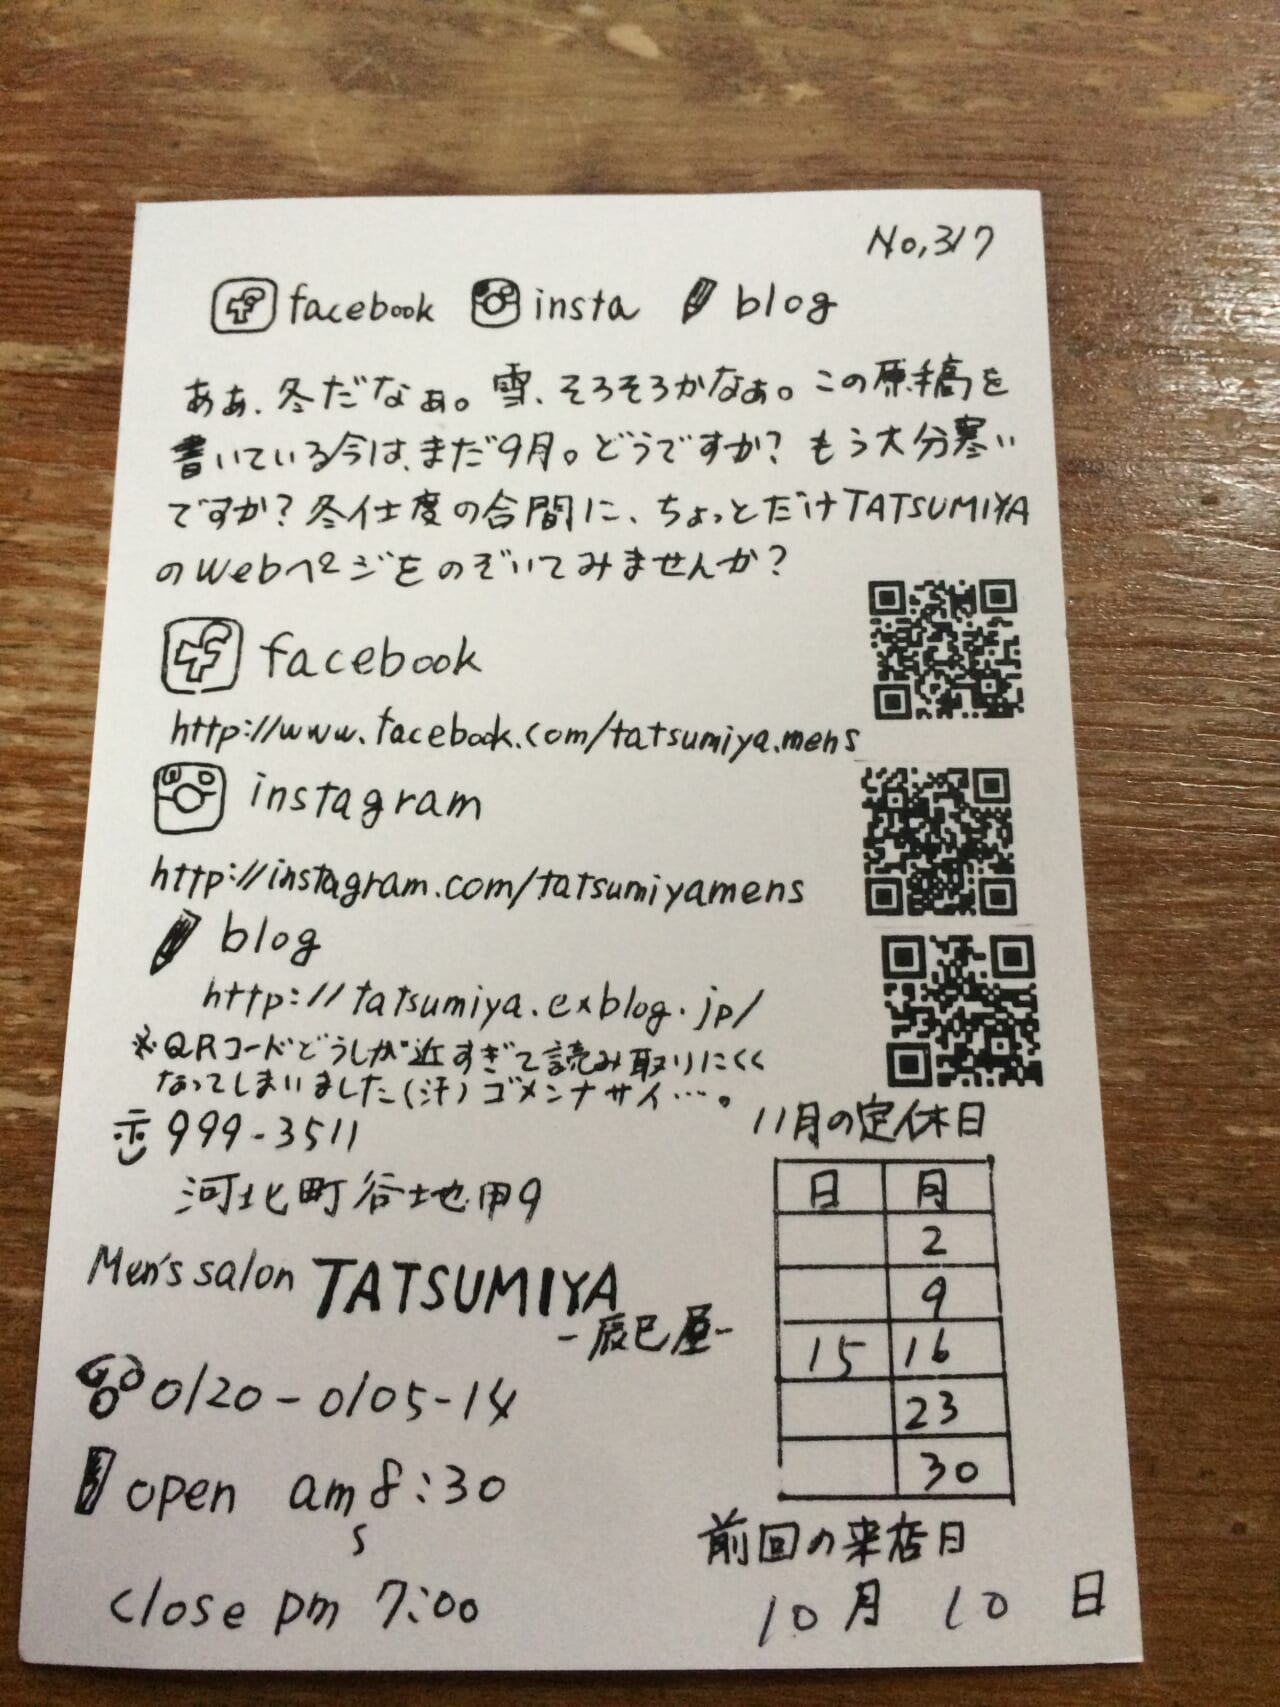 No,317
facebook insta blog
ああ、冬だなぁ。雪、そろそろかなぁ。この原稿を
書いている今は、まだ9月。どうですか?もう大分寒い
ですか?冬仕度の合間に、ちょっとだけTATSUMIYA
のWebページをのぞいてみませんか?
facebook
http://www.facebook.com/tatsumiya.mens
instagram
http://instagram.com/tatsumiyamens
blog
http://tatsumiya.exblog.jp/
※QRコードどうしが近すぎて読み取りにくく
なってしまいました(汗)ゴメンナサイ…。
〒999-3511
河北町谷地甲9
Men's salon TATSUMIYA
-辰巳屋-
0120-0105-14
open am 8:30
S
close pm 7:00
11月の定休日
日 月
2
9
15 16
23
30
前回の来店日
10月 10 日